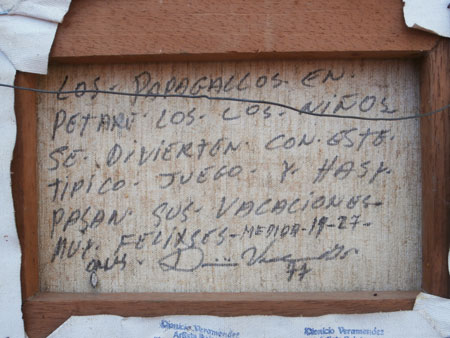 LOS. PAPAGALLOS. EN.
PETARE. LOS. LOS. NIÑOS
SE. DIVIERTEN. CON. ESTE.
TIPICO. JUEGO. Y. HASY.
PASAN. SUS. VACACIONES-
MUY. FELIXSES- MEDIDA- 19-27-
77
Dionicio Veramendez
Artista
Dionicio Veramendez